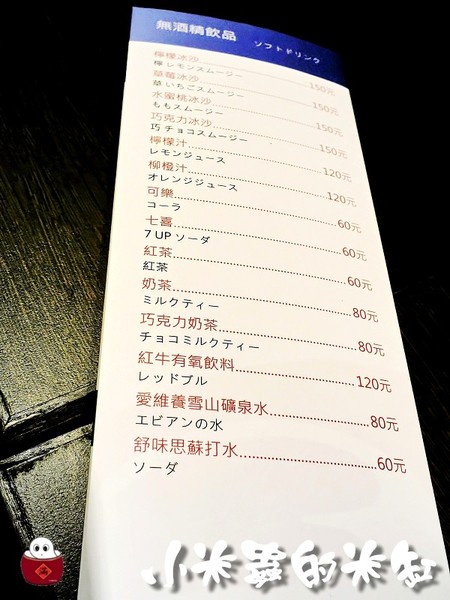 無酒精飲品 ソフトドリンク
檸檬冰沙 150元
檸 レモンスムージー
草莓冰沙 150元
草 いちごスムージー
水蜜桃冰沙 150元
ももスムージー
巧克力冰沙 150元
巧 チョコスムージー
檸檬汁 120元
レモンジュース
柳橙汁 120元
オレンジジュース
可樂 60元
コーラ
七喜 60元
7 UP ソーダ
紅茶 60元
紅茶
奶茶 80元
ミルクティー
巧克力奶茶 80元
チョコミルクティー
紅牛有氧飲料 120元
レッドブル
愛維養雪山礦泉水 80元
エビアンの水
舒味思蘇打水 60元
ソーダ
小米蟲的米缸